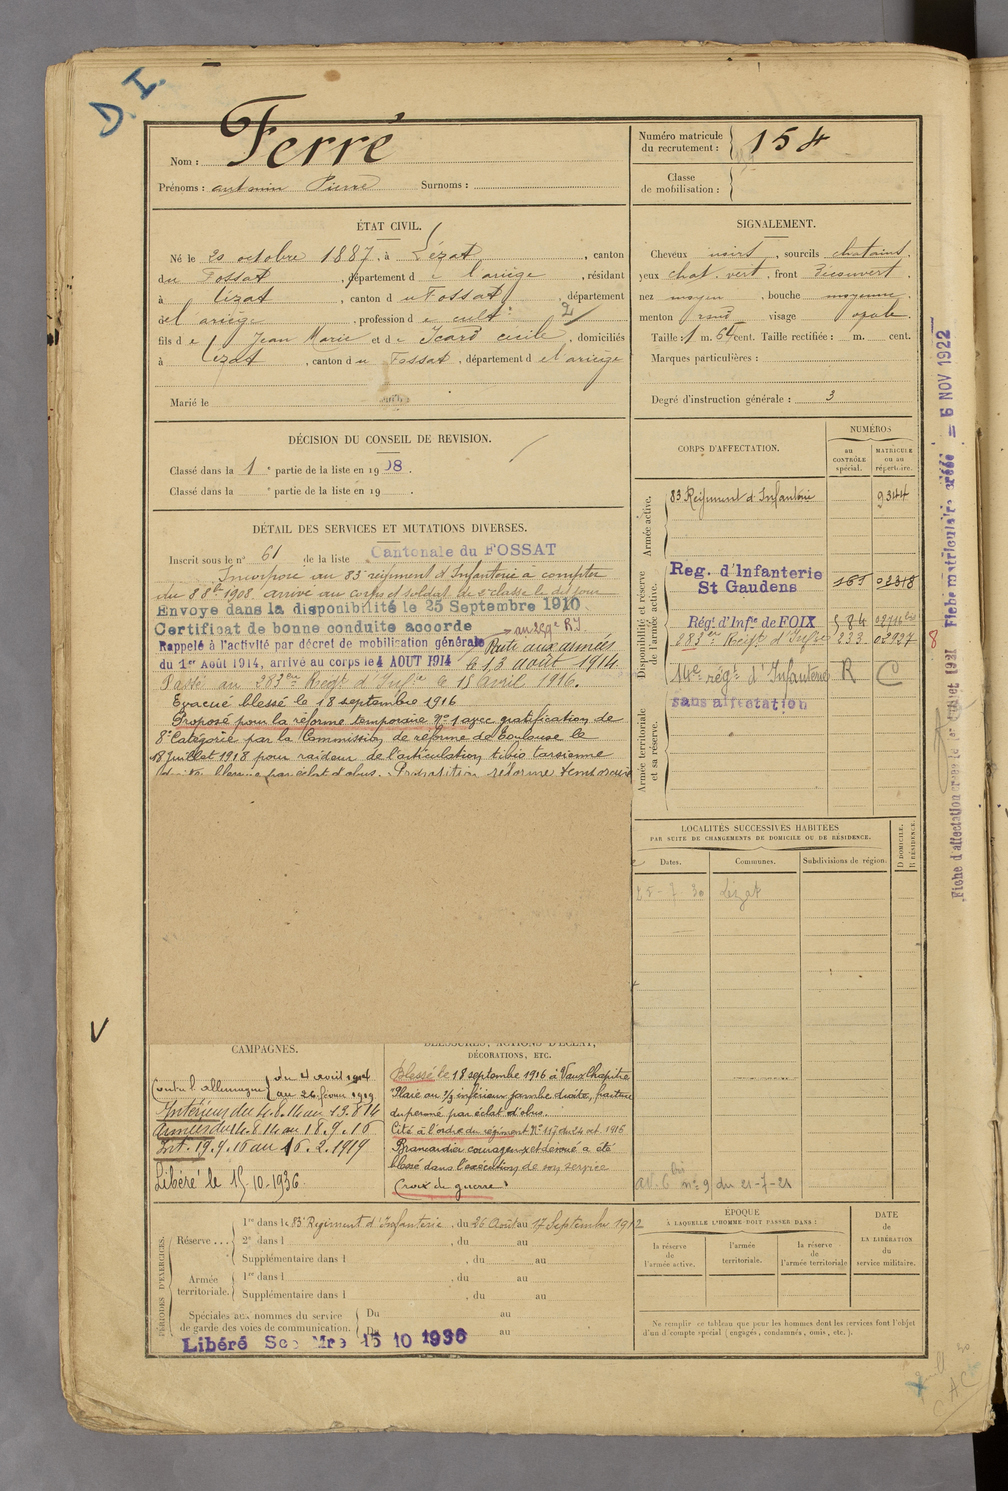 D. I.
Nom : Ferré
Prénoms : antonin Pierre Surnoms :
Numéro matricule
du recrutement : 154
Classe
de mobilisation :
ÉTAT CIVIL.
Né le 20 octobre 1887, à Lézat, canton
du Fossat, département de l'ariège, résidant
à Lézat, canton du Fossat, département
de l'ariège, profession de cultr 2
fils de Jean Marie et de Icard cécile, domiciliés
à Lézat, canton du Fossat, département de l'ariège
Marié le
SIGNALEMENT.
Cheveux noirs, sourcils chatains.
yeux chat. vert, front découvert.
nez moyen, bouche moyenne.
menton rond visage ovale.
Taille : 1 m. cent. Taille rectifiée : m. cent.
Marques particulières :
Degré d'instruction générale : 3
DÉCISION DU CONSEIL DE REVISION.
Classé dans la 1e partie de la liste en 1908.
Classé dans la e partie de la liste en 19 .
DÉTAIL DES SERVICES ET MUTATIONS DIVERSES.
Inscrit sous le n° 61 de la liste Cantonale du FOSSAT
Incorporé au 83e régiment d'Infanterie à compter
du 8 8bre 1908. arrivé au corps et soldat de 2e classe le dit jour
Envoyé dans la disponibilité le 25 Septembre 1910
Certificat de bonne conduite accordé au 259e RI
Rappelé à l'activité par décret de mobilisation générale Parti aux armées
du 1er Août 1914, arrivé au corps le 4 AOUT 1914 le 13 août 1914.
Passé au 283ème Regt d'Infie le 15 avril 1916.
Evacué blessé le 18 septembre 1916
Proposé pour la réforme temporaire No 1 avec gratification de
8e Catégorie par la Commission de réforme de Toulouse le
18 Juillet 1918 pour raideur de l'articulation tibio tarsienne
par éclat d'obus. Proposition réforme temporaire
CORPS D'AFFECTATION.
NUMÉROS
au
CONTRÔLE
spécial.
MATRICULE
ou au
répertoire.
Armée active.
83 Régiment d'Infanterie 9344
Disponibilité et réserve
de l'armée active.
Reg. d'Infanterie
St Gaudens 02318
Régt d'Infie de FOIX 584
283ème Régt d'Infie 233 02927 8
14e régt d'Infanterie R C
sans affectation
Armée territoriale
et sa réserve.
LOCALITÉS SUCCESSIVES HABITÉES
PAR SUITE DE CHANGEMENTS DE DOMICILE OU DE RÉSIDENCE.
Dates. Communes. Subdivisions de région.
D DOMICILE.
R RÉSIDENCE.
15-7-30 Lézat
av. 6 bis n° 9 du 21-7-21
CAMPAGNES.
Contre l'allemagne du 4 août 1914
au 26 février 1919
Intérieur du 4.8.14 au 12.8.14
Armées du 14.8.14 au 18.9.16
Int. 19.9.16 au 16.2.1919
Libéré le 15-10-1936
BLESSURES, ACTIONS D'ÉCLAT,
DÉCORATIONS, ETC.
Blessé le 18 septembre 1916 à Vaux Chapitre
Plaie au 1/3 inférieur jambe droite, fracture
du peroné par éclat d'obus.
Cité à l'ordre du régiment No 117 du 24 oct. 1916
Brancardier courageux et dévoué a été
blessé dans l'exécution de son service
Croix de guerre
PÉRIODES D'EXERCICES.
Réserve... 1re dans le 83e Régiment d'Infanterie, du 26 Août au 17 Septembre 1912
2e dans l , du au
Supplémentaire dans l , du au
Armée
territoriale.
1re dans l , du au
Supplémentaire dans l , du au
Spéciales aux hommes du service
de garde des voies de communication.
Du au
Du au
Libéré Sce Mre 15 10 1936
ÉPOQUE
À LAQUELLE L'HOMME DOIT PASSER DANS :
la réserve
de
l'armée active.
l'armée
territoriale.
la réserve
de
l'armée territoriale
DATE
de
LA LIBÉRATION
du
service militaire.
Ne remplir ce tableau que pour les hommes dont les services font l'objet
d'un décompte spécial (engagés, condamnés, omis, etc.).
V
Fiche d'affectation créée le 1er Juillet 1921 Fiche matriculaire créée = 6 NOV 1922